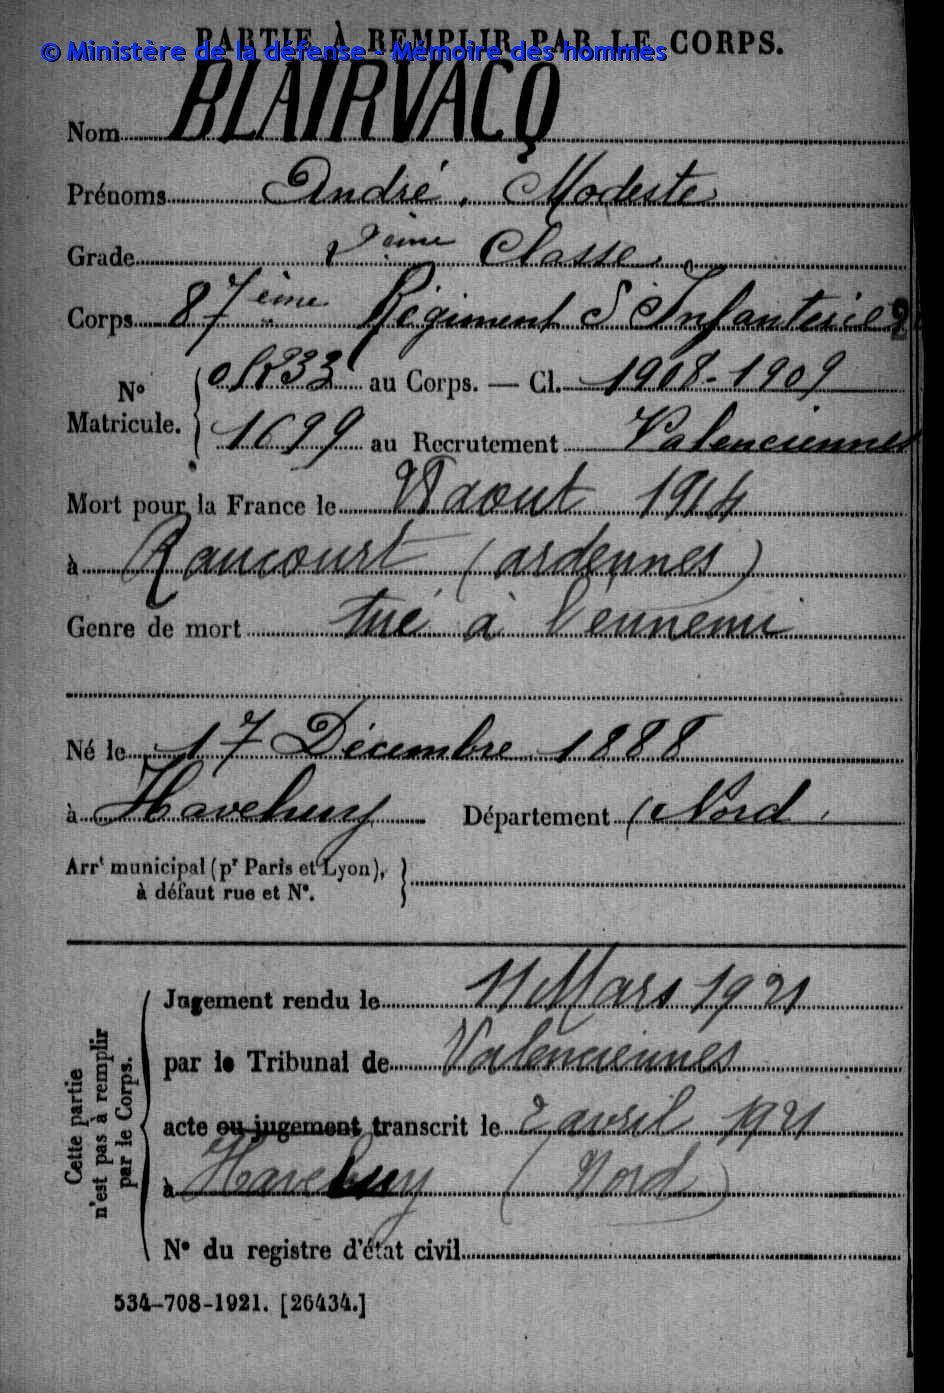 PARTIE À REMPLIR PAR LE CORPS.
© Ministère de la défense - Mémoire des hommes
Nom BLAIRVACQ
Prénoms André, Modeste
Grade 2ème Classe
Corps 87ème Régiment d'Infanterie
N° Matricule. { 0R33 au Corps. — Cl. 1908-1909
1699 au Recrutement Valenciennes
Mort pour la France le aout 1914
à Raucourt (ardennes)
Genre de mort tué à l'ennemi
Né le 17 Décembre 1888
à Haveluy Département (Nord
Arrt municipal (pr Paris et Lyon), }
à défaut rue et N°.
Cette partie n'est pas à remplir par le Corps.
Jugement rendu le 11 Mars 1921
par le Tribunal de Valenciennes
acte ou jugement transcrit le 2 avril 1921
à Haveluy (Nord)
N° du registre d'état civil
534-708-1921. [26434.]